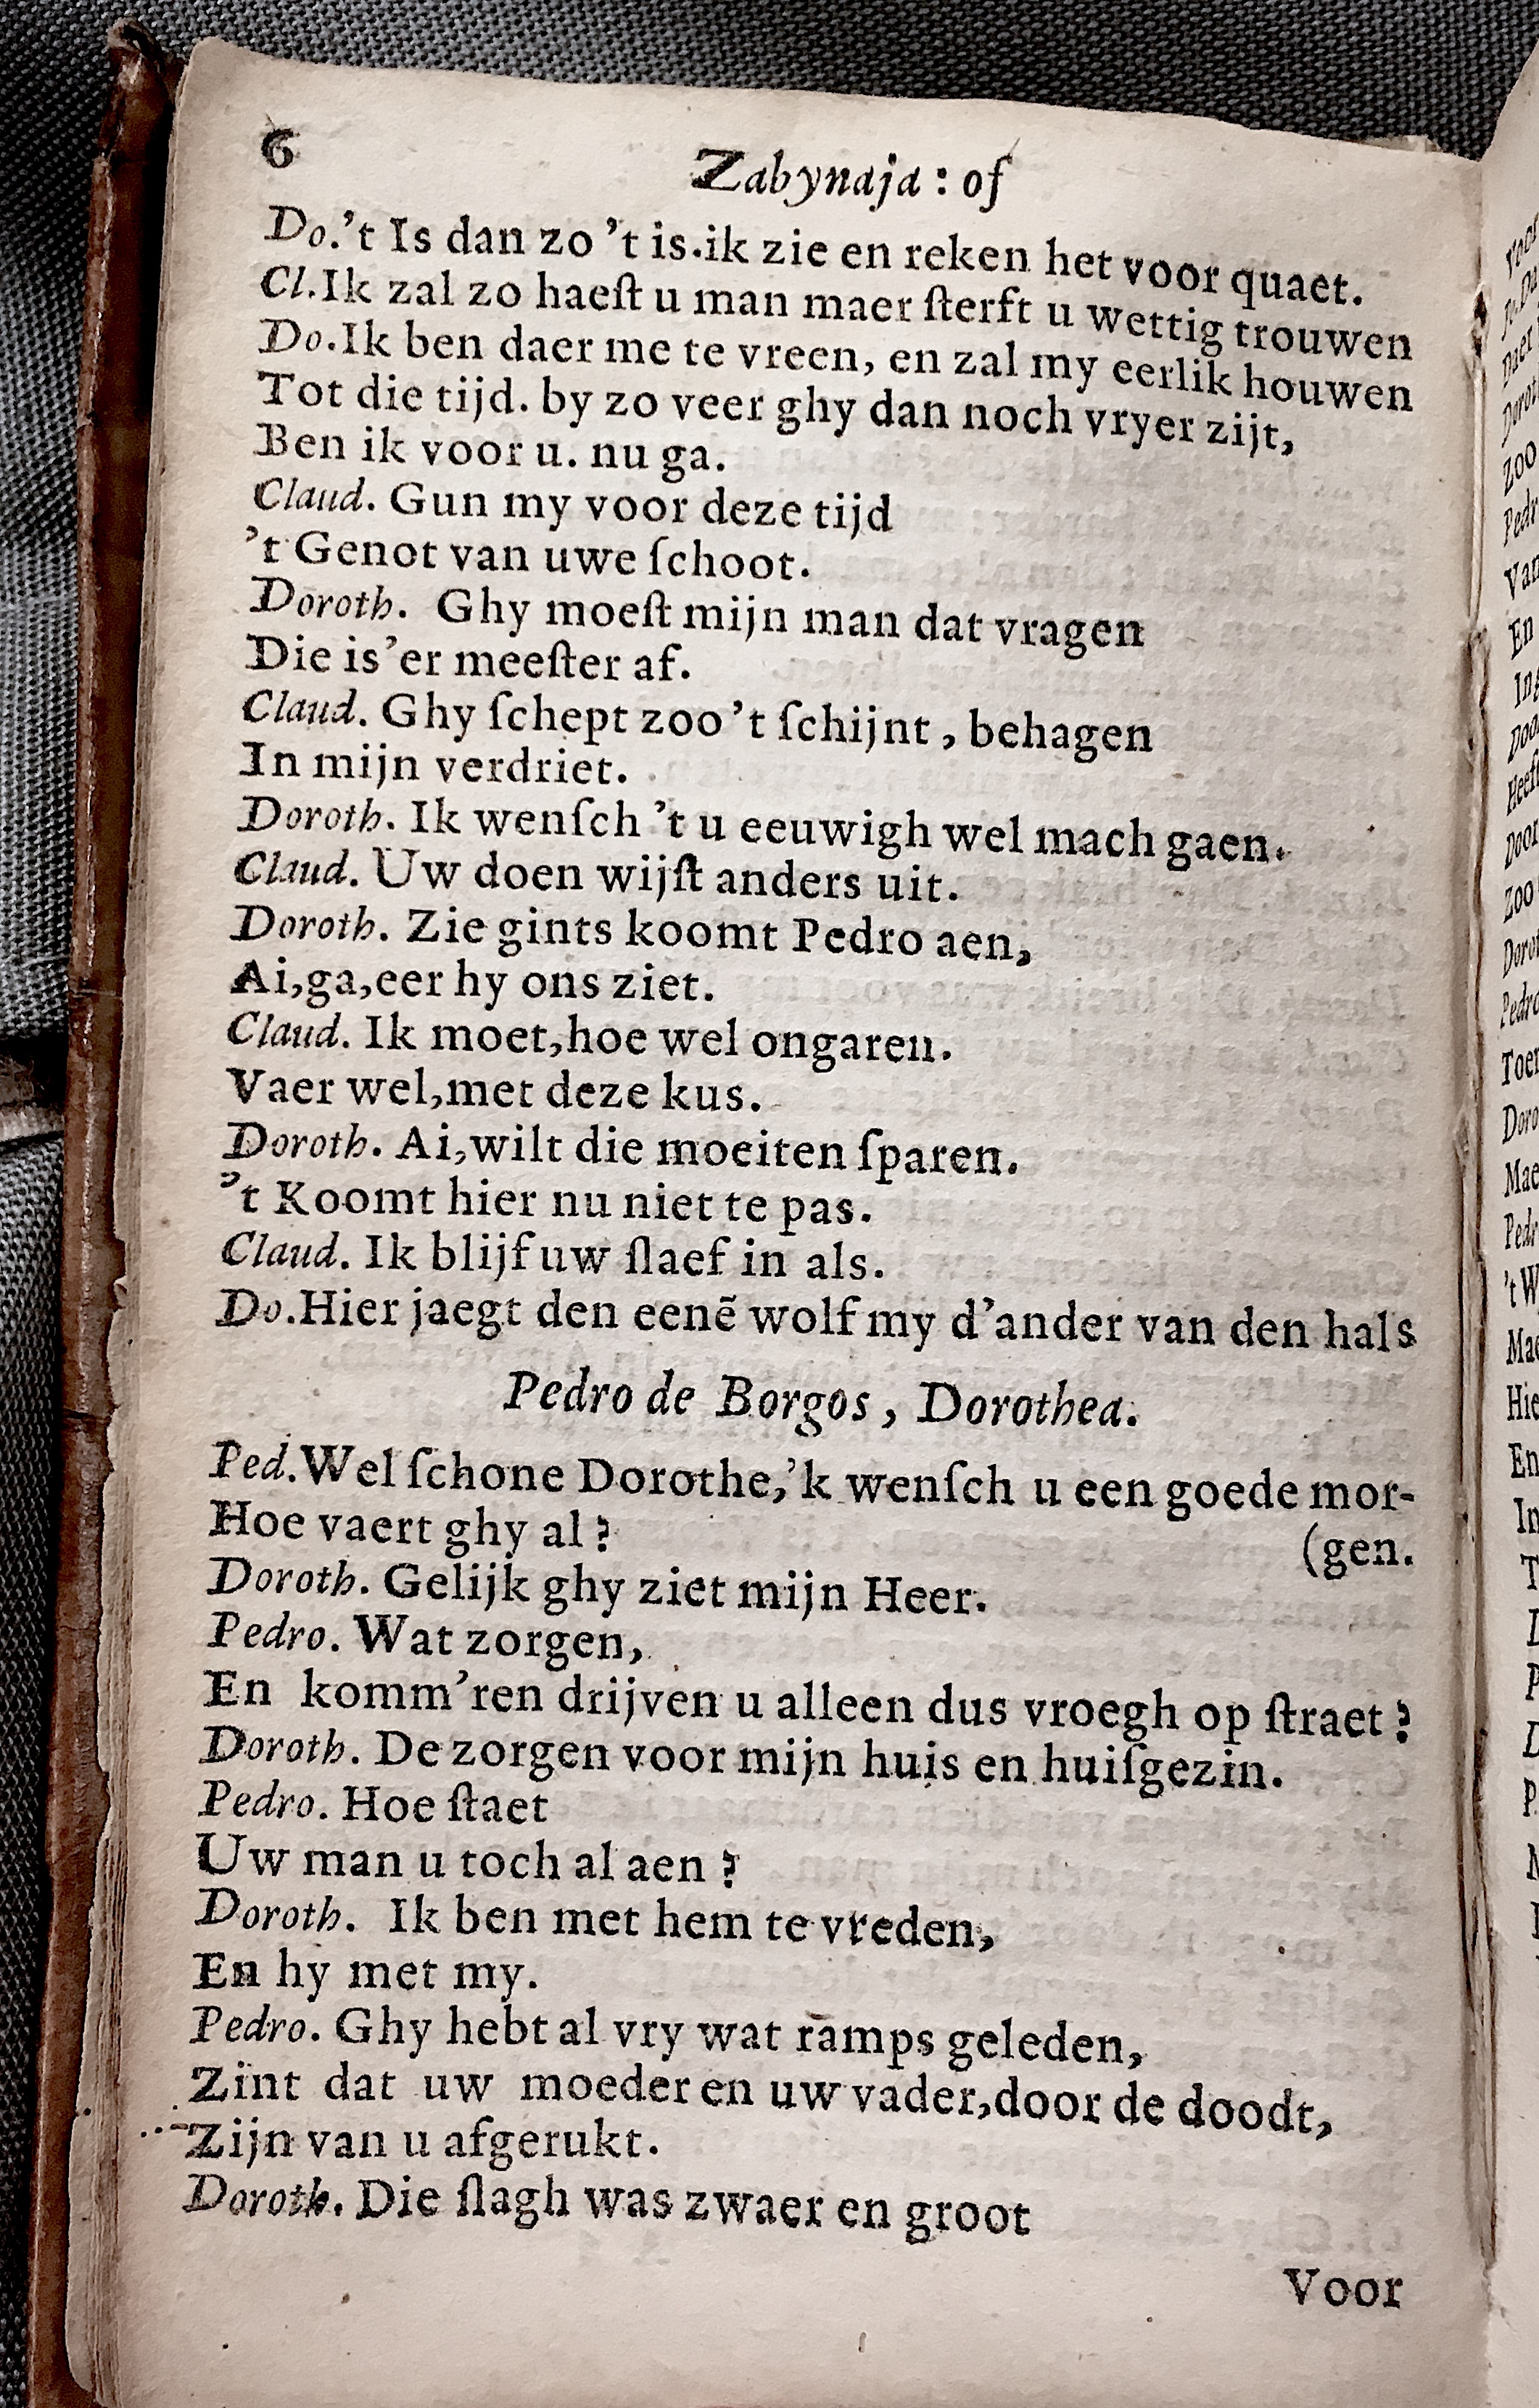 6
Zabynaja : of
Do.’t Is dan zo ’t is.ik zie en reken het voor quaet.
Cl.Ik zal zo haeſt u man maer ſterft u wettig trouwen
Do.Ik ben daer me te vreen, en zal my eerlik houwen
Tot die tijd. by zo veer ghy dan noch vryer zijt,
Ben ik voor u. nu ga.
Claud. Gun my voor deze tijd
’t Genot van uwe ſchoot.
Doroth. Ghy moeſt mijn man dat vragen
Die is’er meeſter af.
Claud. Ghy ſchept zoo ’t ſchijnt , behagen
In mijn verdriet.
Doroth. Ik wenſch ’t u eeuwigh wel mach gaen.
Claud. Uw doen wijſt anders uit.
Doroth. Zie gints koomt Pedro aen,
Ai,ga,eer hy ons ziet.
Claud. Ik moet,hoe wel ongaren.
Vaer wel,met deze kus.
Doroth. Ai,wilt die moeiten ſparen.
’t Koomt hier nu niet te pas.
Claud. Ik blijf uw ſlaef in als.
Do.Hier jaegt den eenē wolf my d’ander van den hals
Pedro de Borgos , Dorothea.
Ped.Wel ſchone Dorothe,’k wenſch u een goede mor-
Hoe vaert ghy al ? (gen.
Doroth. Gelijk ghy ziet mijn Heer.
Pedro. Wat zorgen,
En komm’ren drijven u alleen dus vroegh op ſtraet ?
Doroth. De zorgen voor mijn huis en huiſgezin.
Pedro. Hoe ſtaet
Uw man u toch al aen ?
Doroth. Ik ben met hem te vreden,
En hy met my.
Pedro. Ghy hebt al vry wat ramps geleden,
Zint dat uw moeder en uw vader,door de doodt,
Zijn van u afgerukt.
Doroth. Die ſlagh was zwaer en groot
Voor